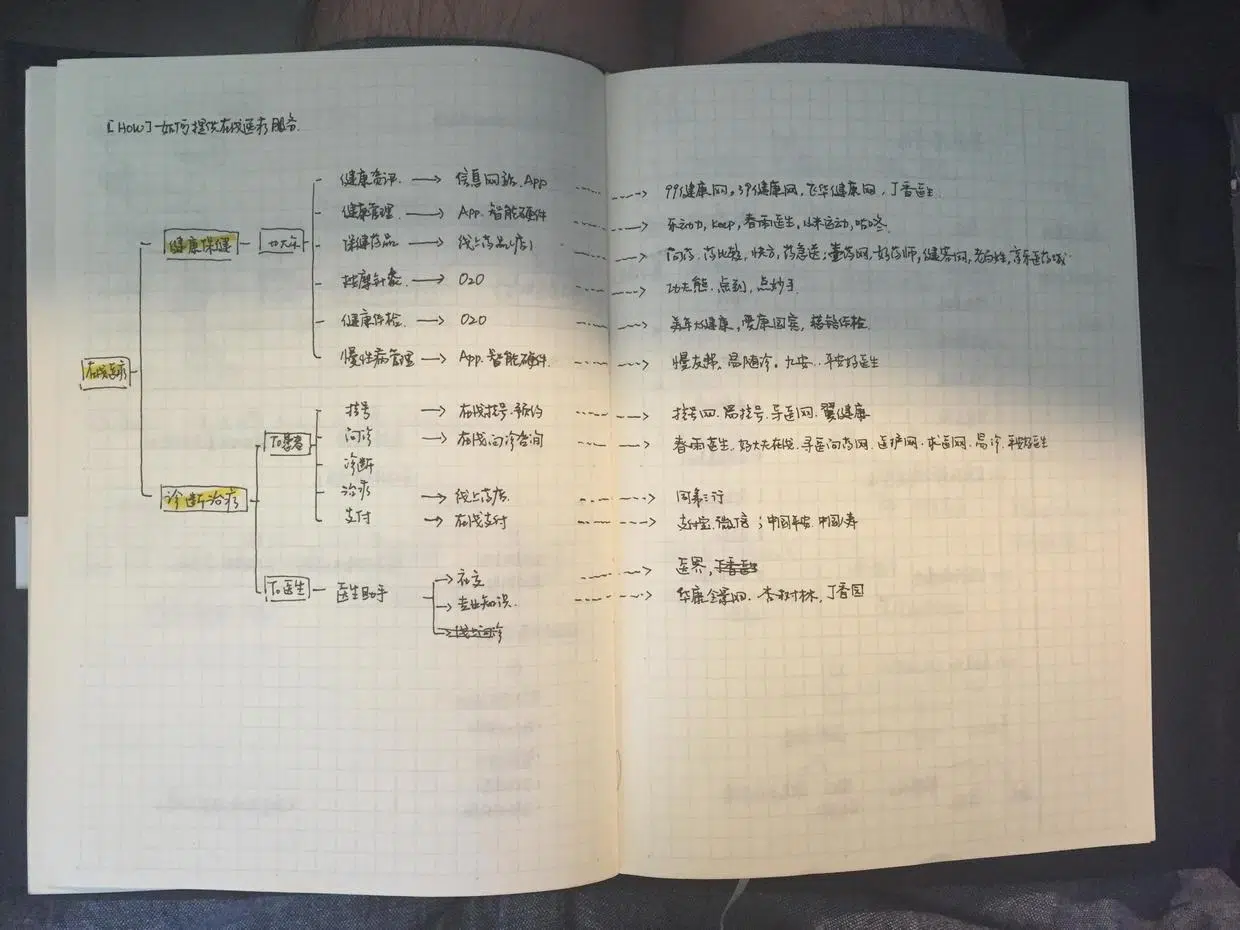 [HOW]-如何提供在线医疗服务.
健康资讯. → 信息网站. App → 99健康网, 39健康网, 飞华健康网, 丁香医生.
健康管理. → App. 智能硬件 → 乐动力, keep, 春雨医生, 小米运动, 咕咚.
健康保健
保健药品 → 线上药品(店) → 问药. 药比较, 快方, 药急送; 壹药网, 好药师, 健客网, 老百姓, 京东医药城
按摩针灸 → O2O → 功夫熊. 点到, 点妙手
健康体检. → O2O → 美年大健康, 爱康国宾,
慢性病管理 → App. 智能硬件. → 慢友帮, 易随诊, 九安.. 平安好医生
在线医疗
挂号 → 在线挂号. 预约 → 挂号网. 易挂号. 导医网. 翼健康
To患者
问诊 → 在线问诊咨询 → 春雨医生. 好大夫在线. 寻医问药网. 医护网. 求医网. 易诊. 平安好医生
诊断
诊断治疗
治疗 → 线上药店. → 同第三行
支付 → 在线支付 → 支付宝. 微信; 中国平安. 中国人寿
To医生
医生助手
社交 → 医界, 丁香医生
专业知识. → 华康全景网. 杏树林, 丁香园
线上问诊